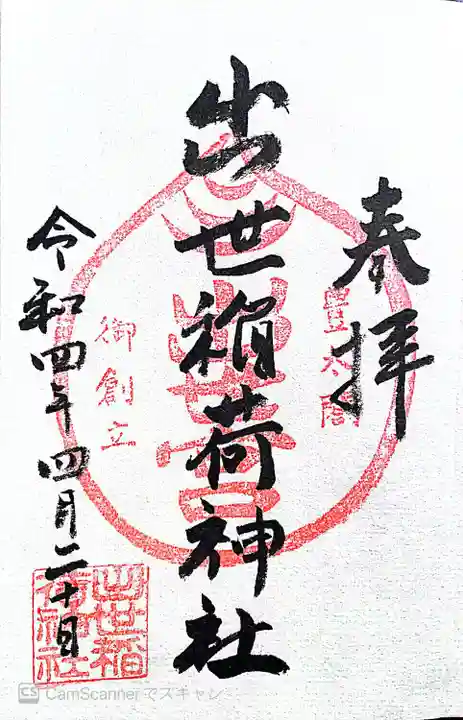 奉拝
豊太閤
出世稲荷神社
御創立
令和四年四月二十日
出世稲
荷神社
CS CamScannerでスキャン